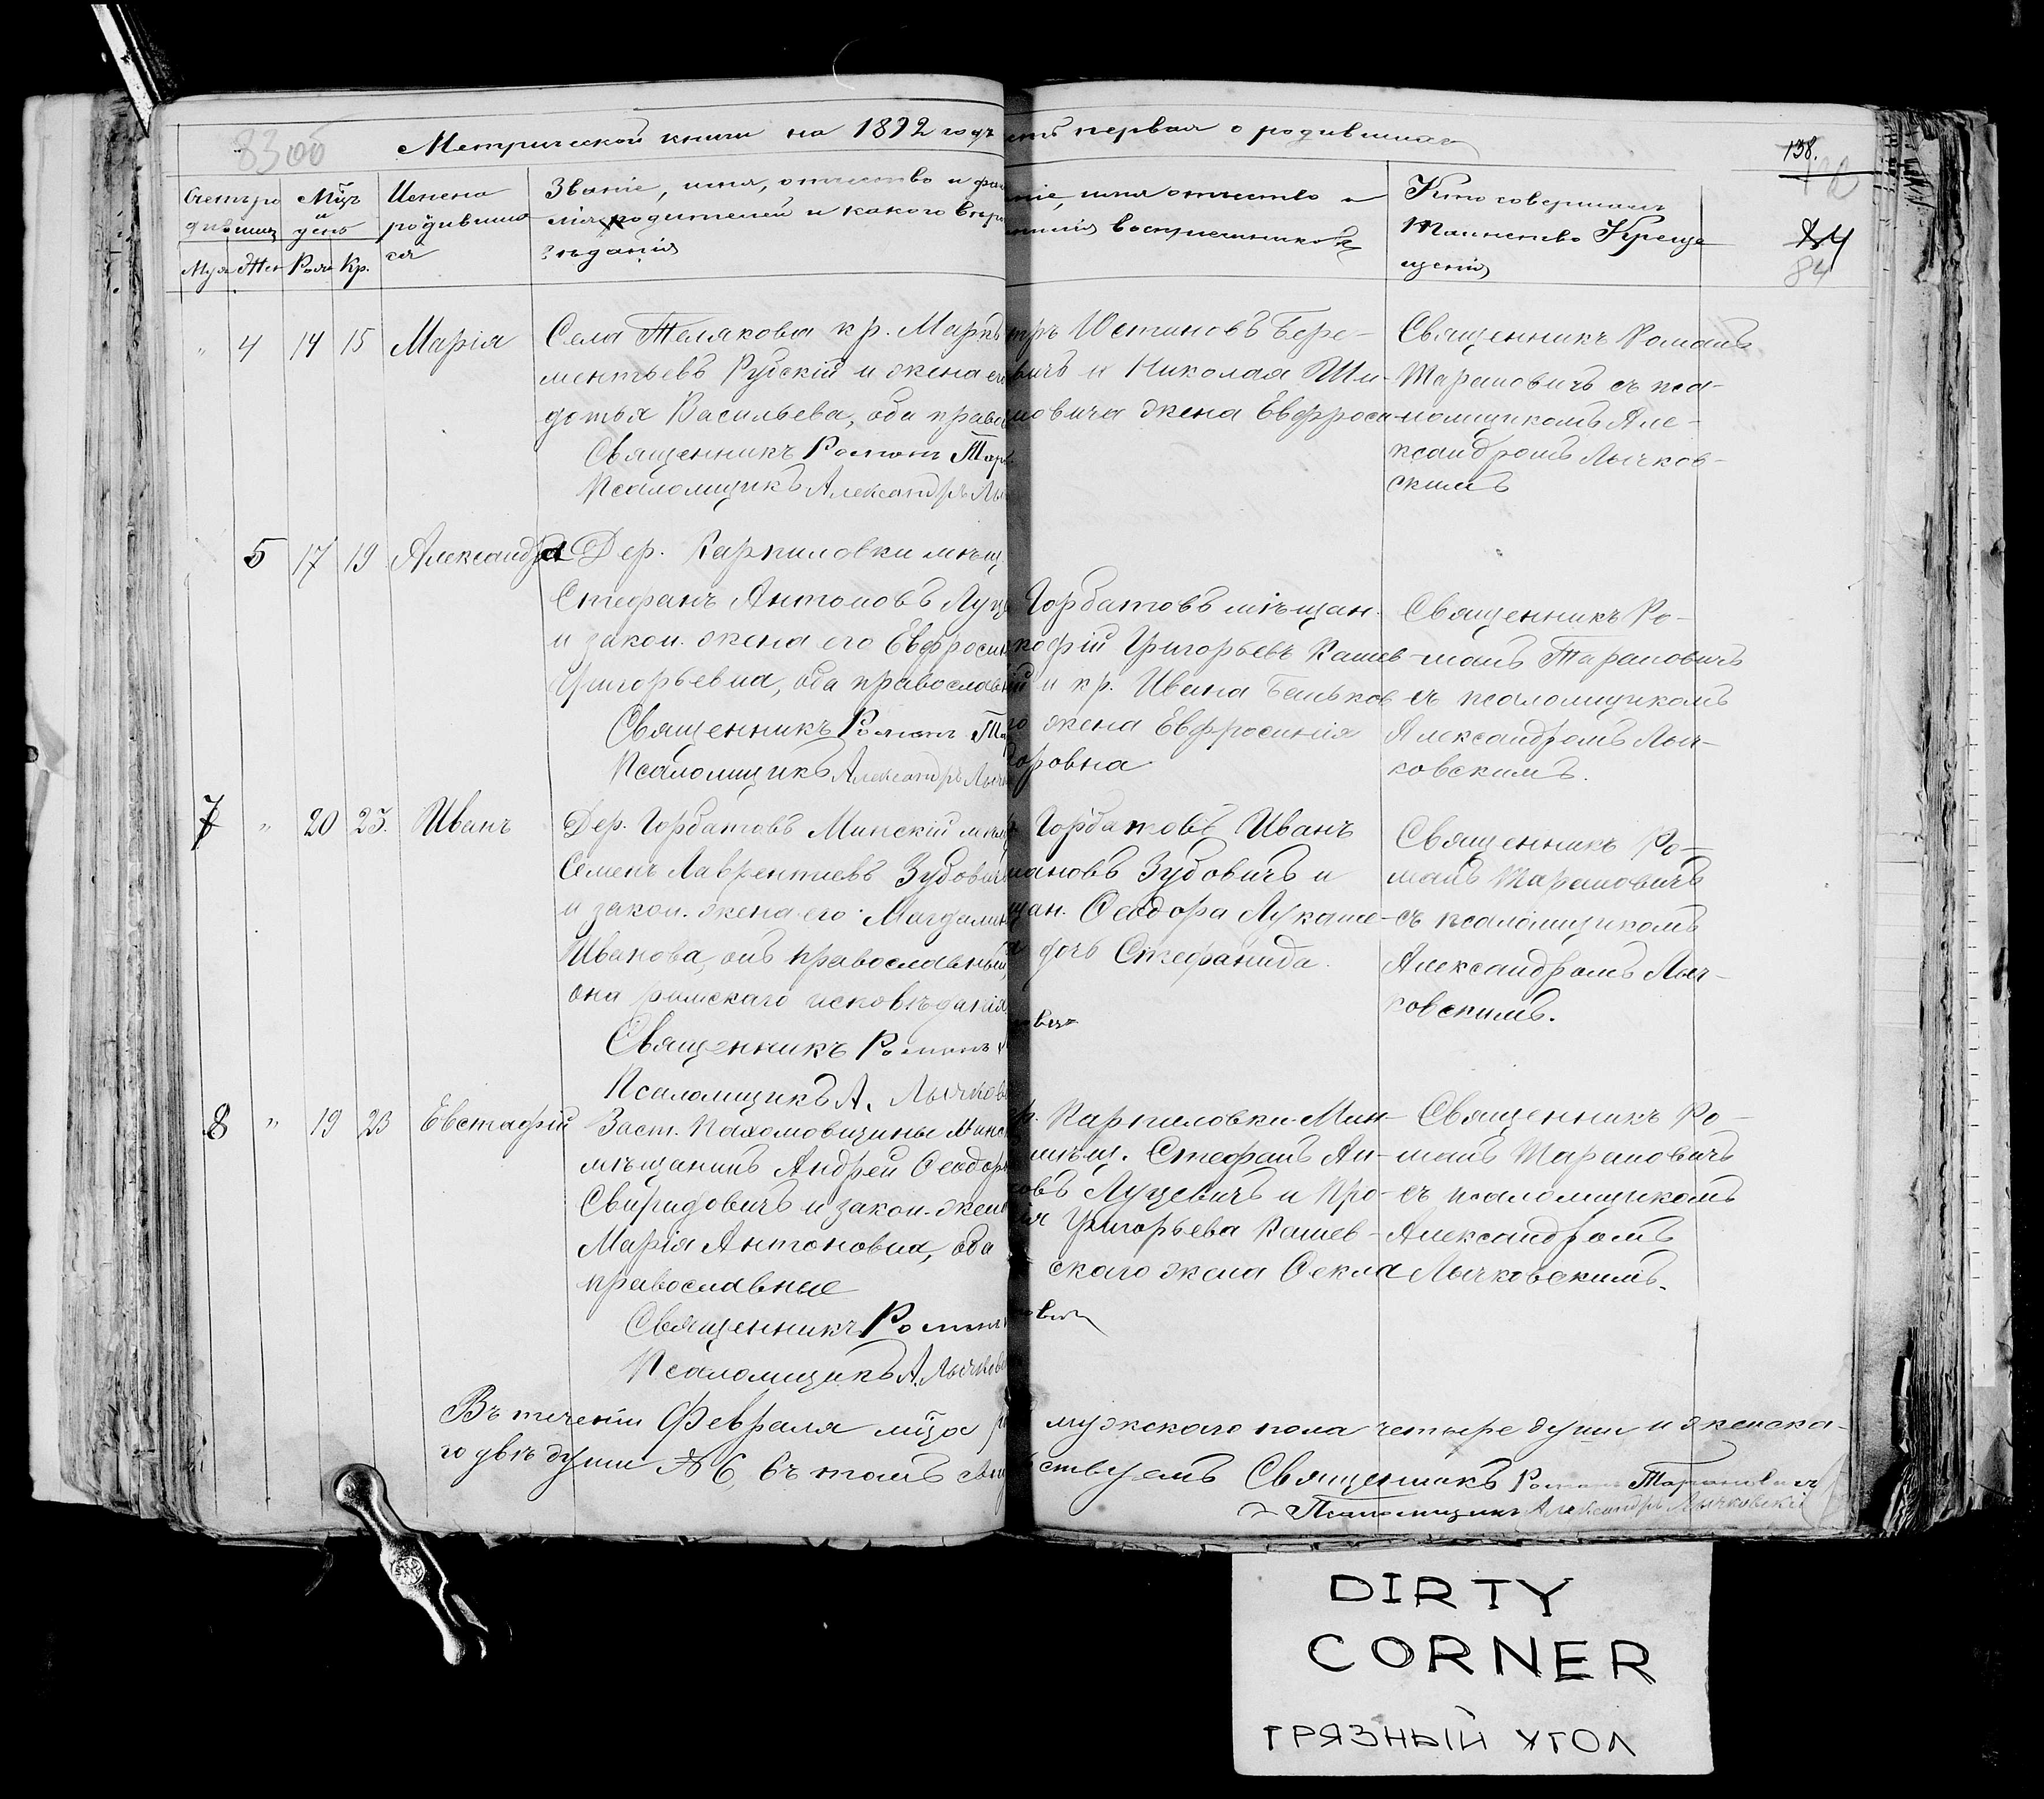 8300
Метрической книги на 1892 годъ
первая о родившихся
138.
84
84
Мѣц и день
Имена родившихся
Званіе, имя, отчество и фами
лія родителей и какого вѣро
исповѣданія
имя отчество и
воспріемниковъ
Кто совершалъ
Таинство Креще
щенія
Муж Жен Рож Кр.
" 4 14 15 Марія
Села Телякова кр. Маркъ
ментьевъ Рубскій и жена его
дотья Васильева, оба право
Священникъ Романъ Тар
Псаломщикъ Александръ Лы
Устиновъ Бере-
вичъ и Николая Ши-
мовича жена Евфроси-
Священникъ Романъ
Тарановичъ съ пса-
ломщикомъ Але-
ксандромъ Лычков-
скимъ
5 17 19 Александра
Дер. Карпиловки мѣщ
Стефанъ Антоновъ Луце
и закон. жена его Евфросин
Григорьевна, оба православ
Священникъ Романъ Та
Псаломщикъ Александръ Лыч
Горбатовъ мѣщан.
кофій Григорьевъ Кашев-
и кр. Ивана Беньков
жена Евфросинія
доровна
Священникъ Ро-
манъ Тарановичъ
съ псаломщикомъ
Александромъ Лыч-
ковскимъ.
7 " 20 25. Иванъ
Дер. Горбатовъ Минскій мѣщ
Семенъ Лаврентіевъ Зубович
и закон. жена его Магдалин
Иванова, онъ православный,
она римскаго исповѣданія
Священникъ Романъ
Псаломщикъ А. Лычков
Горбатовъ Иванъ
мановъ Зубовичъ и
щан. Ѳеодора Лукаше-
дочь Стефанида.
Священникъ Ро-
манъ Тарановичъ
съ псаломщикомъ
Александромъ Лыч-
ковскимъ.
8 " 19 23 Евстафій
Заст. Пахомовщины Минс
мѣщанинъ Андрей Ѳеодоро
Свиридовичъ и закон. жена
Марія Антоновна, оба
православные
Священникъ Романъ
Псаломщикъ А. Лычков
Карпиловки Мин-
мѣщ. Стефанъ Ан-
новъ Луцевичъ и Про-
Григорьева Кашев-
скаго жена Ѳекла
Священникъ Ро-
манъ Тарановичъ
съ псаломщикомъ
Александромъ
Лычковскимъ.
Въ теченіи Февраля мѣца
мужскаго пола четыре души и женска-
го двѣ души А 6, въ томъ
ствуемъ Священникъ Романъ Тарановичъ
Псаломщикъ Александръ Лычковскій
DIRTY
CORNER
ГРЯЗНЫЙ УГОЛ